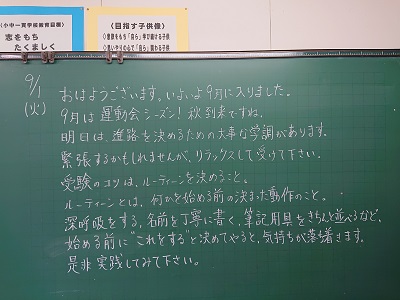 〈小中一貫学校教育目標〉
志をもち
たくましく
〈目指す子供像〉
9/1
(火)
おはようございます。いよいよ9月に入りました。
9月は運動会シーズン！秋到来ですね。
明日は、進路を決めるための大事な学調があります。
緊張するかもしれませんが、リラックスして受けて下さい。
受験のコツは、ルーティーンを決めること。
ルーティーンとは、何かを始める前の決まった動作のこと。
深呼吸をする、名前を丁寧に書く、筆記用具をきちんと並べるなど、
始める前に"これをする"と決めてやると、気持ちが落ち着きます。
是非実践してみて下さい。